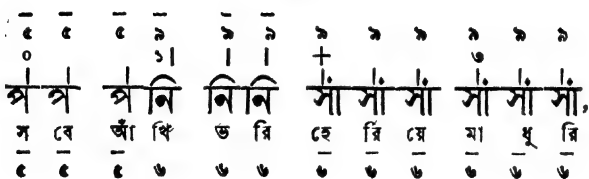 ৫ ৫ ৫ ৯ ৯ ৯ ৯ ৯ ৯ ৯ ৯ ৯
০ ১। । । + ৩
র্প র্প র্প নি নি নি র্সাং র্সাং র্সাং র্সাং র্সাং র্সাং,
স বে আঁ খি ভ রি হে রি য়ে মা ধু রি
৫ ৫ ৫ ৬ ৬ ৬ ৬ ৬ ৬ ৬ ৬ ৬